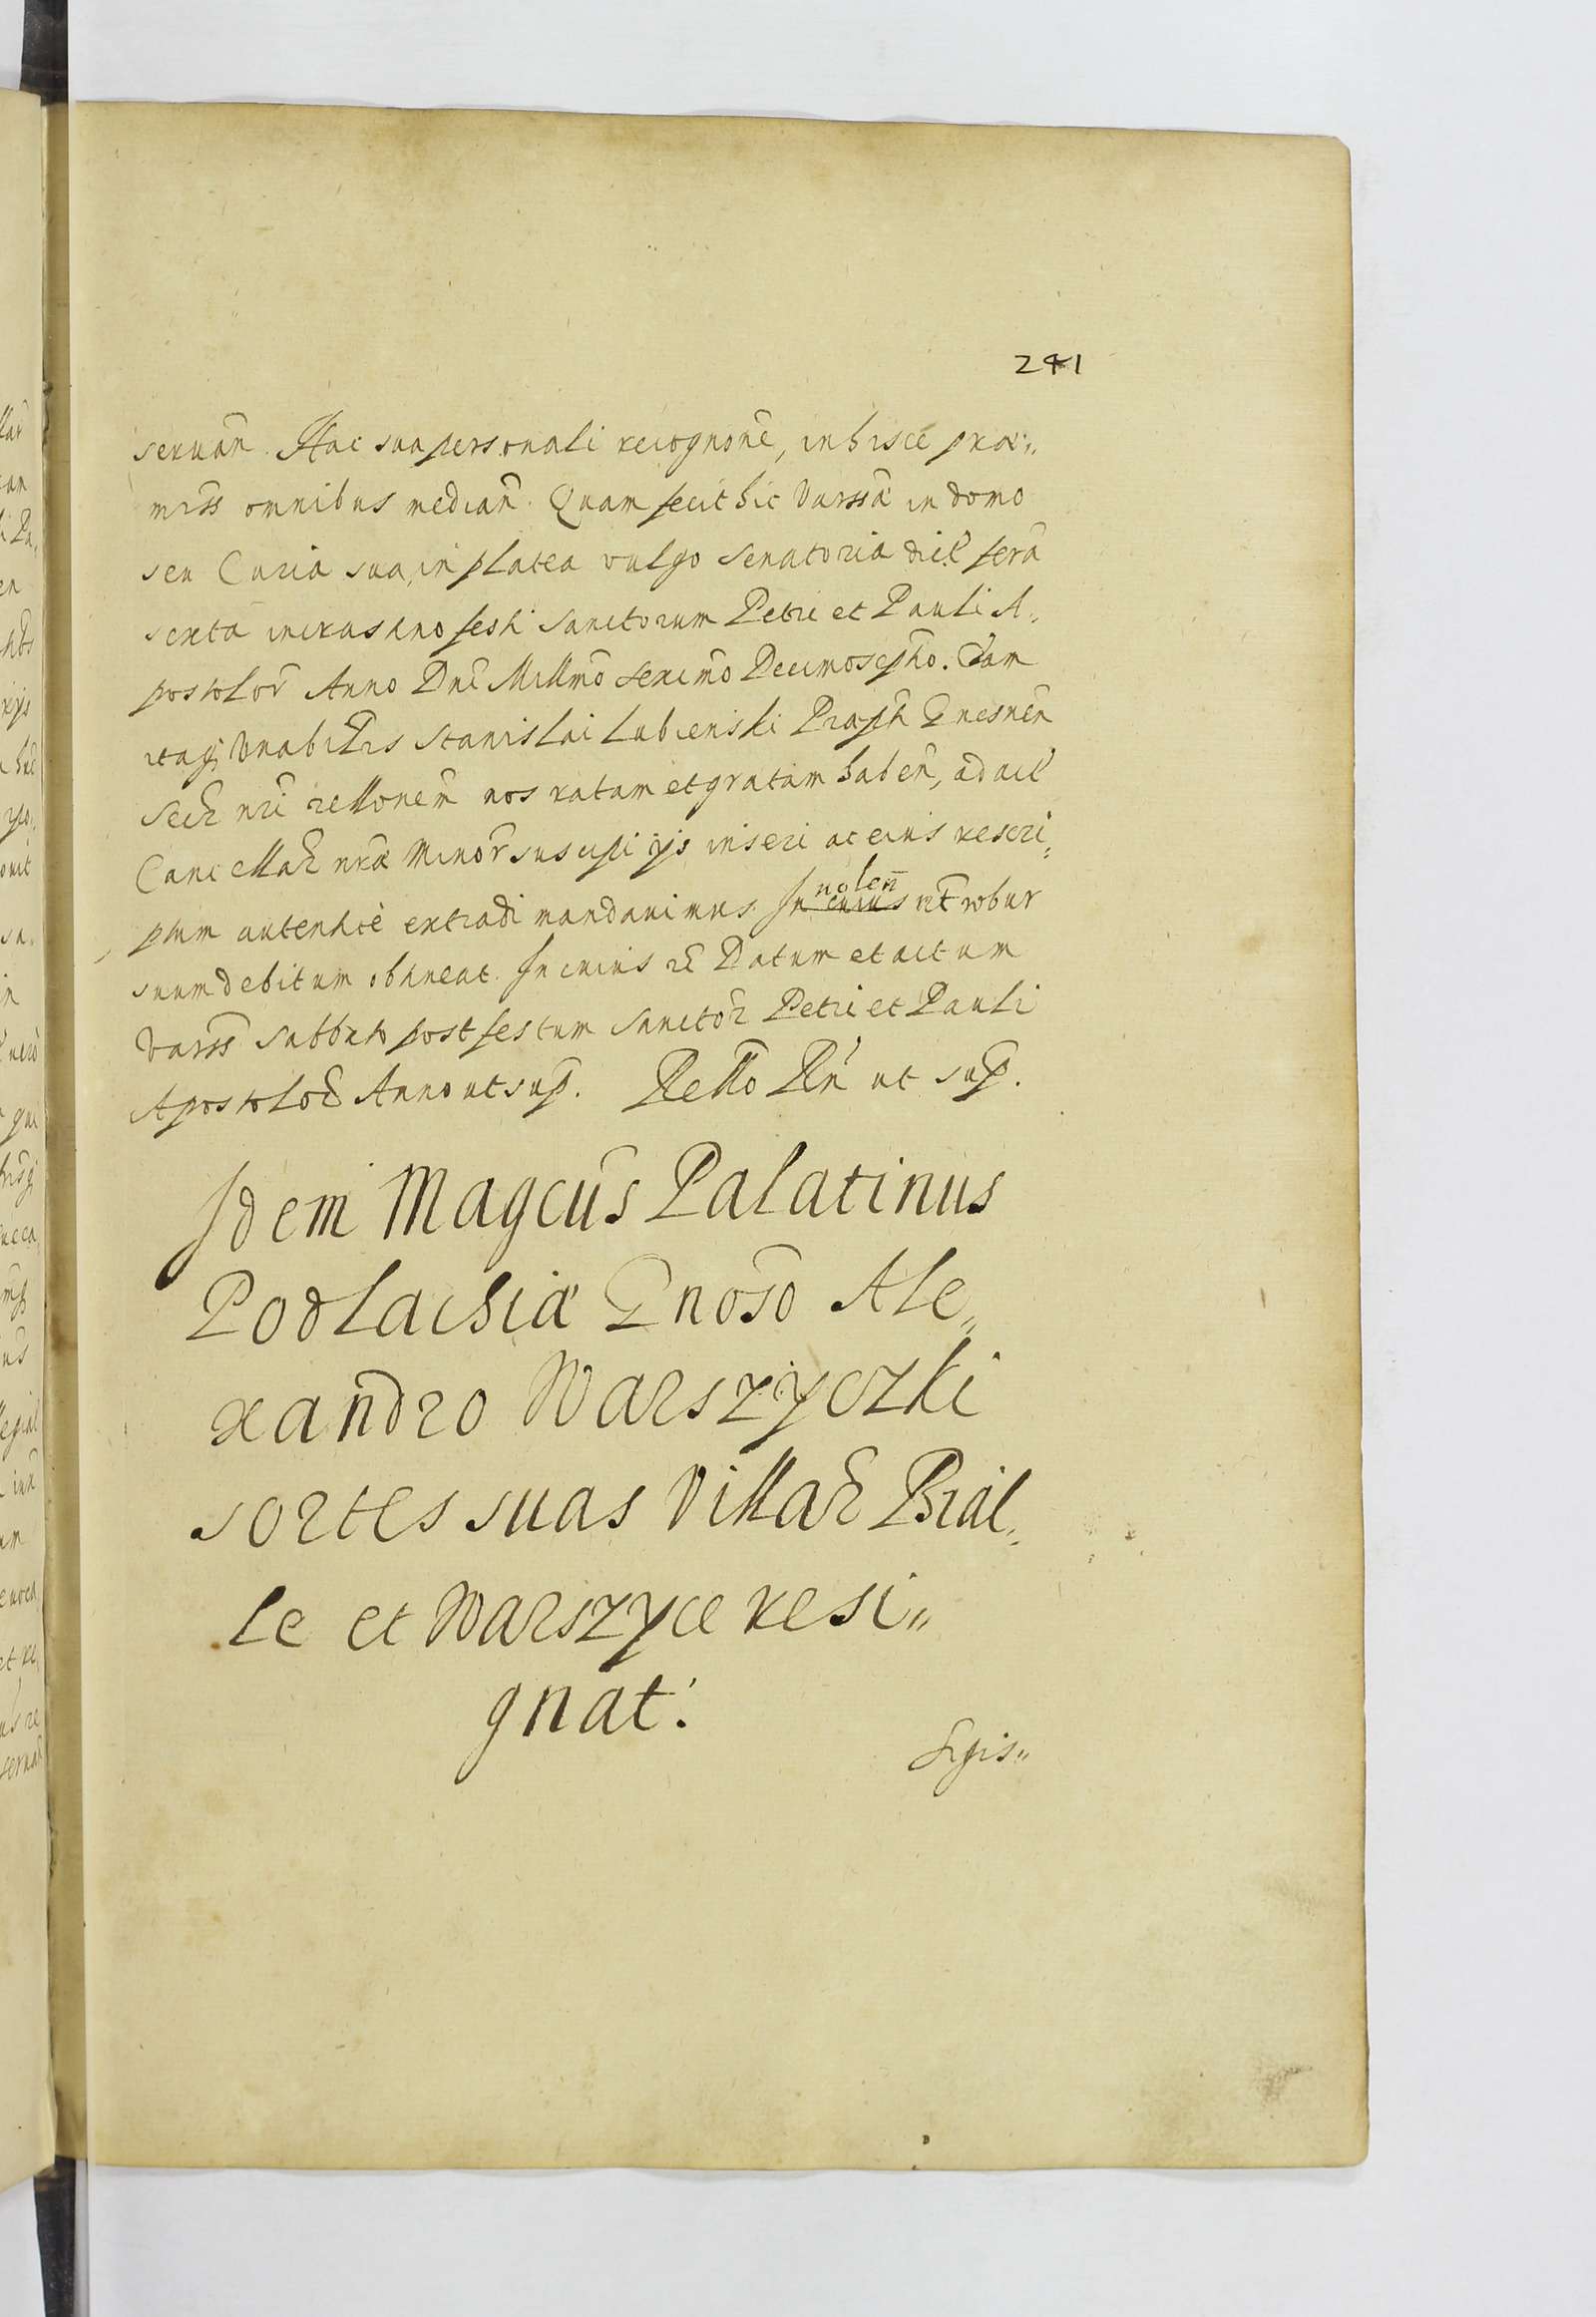 241
seruan̄. Hac sua personali recognōne, in hisce præ„
miss̄ omnibus median̄. Quam fecit hic Varssæ in domo
seu Curia sua, in platea vulgo Senatoria dict̄ feria
sexta in crastino festi Sanctorum Petri et Pauli A„
postolor̄ Anno Dn̄i Millmō sexcmō Decimoseptīo. Quam
itaq; Vnabilis Stanislai Lubienski Præpti Gnesnēn
Secr̄ nr̄i rellonem̄ nos ratam et gratam haben̄, ad act̄
Cancellar̄ nr̄æ Minor̄ suscipi ijs inseri ac eius rescri„
ptum autentice extradi mandauimus. In cuius nolen̄ ut robur
suum debitum obtineat. In cuius r̄ Datum et actum
Varss̄ Sabbato post festum Sanctor̄ Petri et Pauli
Apostolor̄ Anno ut sup̄. Rello Eḿ ut sup̄.
Idem Magcūs Palatinus
Podlachiæ Gnoso Ale„
xandro Warszyczki
sortes suas Villar̄ Biał„
łe et Warszyce resi„
gnat.
Sigis„